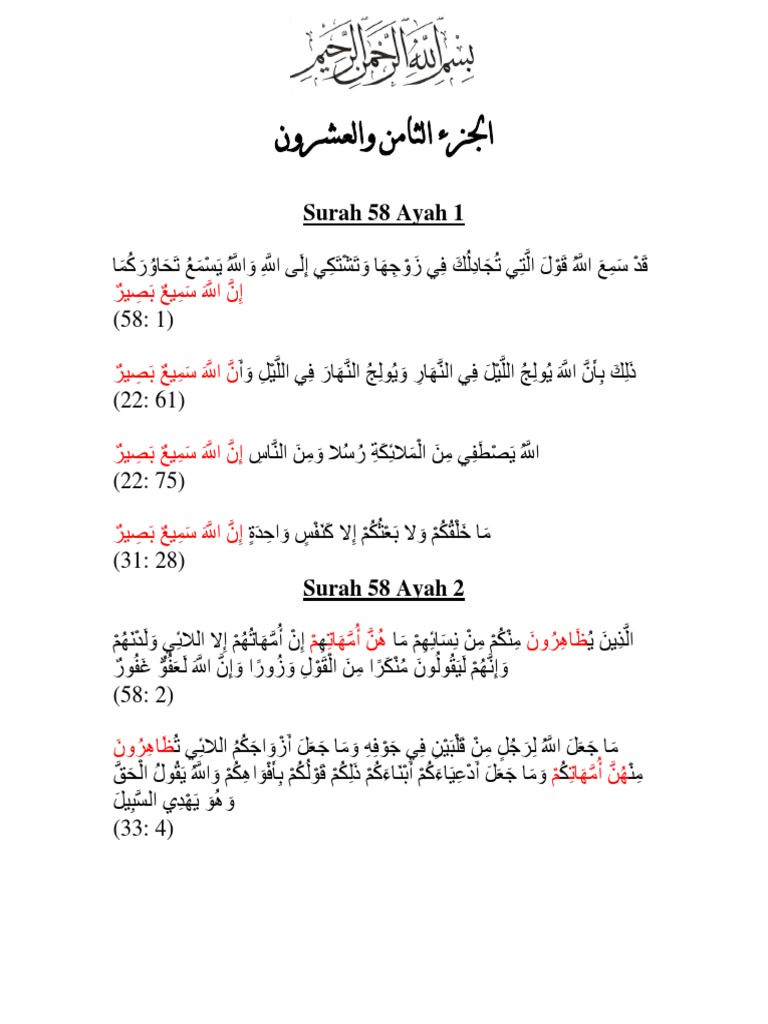 بِسْمِ اللَّهِ الرَّحْمَنِ الرَّحِيمِ
الجزء الثامن والعشرون
Surah 58 Ayah 1
قَدْ سَمِعَ اللَّهُ قَوْلَ الَّتِي تُجَادِلُكَ فِي زَوْجِهَا وَتَشْتَكِي إِلَى اللَّهِ وَاللَّهُ يَسْمَعُ تَحَاوُرَكُمَا
إِنَّ اللَّهَ سَمِيعٌ بَصِيرٌ
(58: 1)
ذَلِكَ بِأَنَّ اللَّهَ يُولِجُ اللَّيْلَ فِي النَّهَارِ وَيُولِجُ النَّهَارَ فِي اللَّيْلِ وَأَنَّ اللَّهَ سَمِيعٌ بَصِيرٌ
(22: 61)
اللَّهُ يَصْطَفِي مِنَ الْمَلائِكَةِ رُسُلا وَمِنَ النَّاسِ إِنَّ اللَّهَ سَمِيعٌ بَصِيرٌ
(22: 75)
مَا خَلْقُكُمْ وَلا بَعْثُكُمْ إِلا كَنَفْسٍ وَاحِدَةٍ إِنَّ اللَّهَ سَمِيعٌ بَصِيرٌ
(31: 28)
Surah 58 Ayah 2
الَّذِينَ يُظَاهِرُونَ مِنْكُمْ مِنْ نِسَائِهِمْ مَا هُنَّ أُمَّهَاتِهِمْ إِنْ أُمَّهَاتُهُمْ إِلا اللائِي وَلَدْنَهُمْ
وَإِنَّهُمْ لَيَقُولُونَ مُنْكَرًا مِنَ الْقَوْلِ وَزُورًا وَإِنَّ اللَّهَ لَعَفُوٌّ غَفُورٌ
(58: 2)
مَا جَعَلَ اللَّهُ لِرَجُلٍ مِنْ قَلْبَيْنِ فِي جَوْفِهِ وَمَا جَعَلَ أَزْوَاجَكُمُ اللائِي تُظَاهِرُونَ
مِنْهُنَّ أُمَّهَاتِكُمْ وَمَا جَعَلَ أَدْعِيَاءَكُمْ أَبْنَاءَكُمْ ذَلِكُمْ قَوْلُكُمْ بِأَفْوَاهِكُمْ وَاللَّهُ يَقُولُ الْحَقَّ
وَهُوَ يَهْدِي السَّبِيلَ
(33: 4)